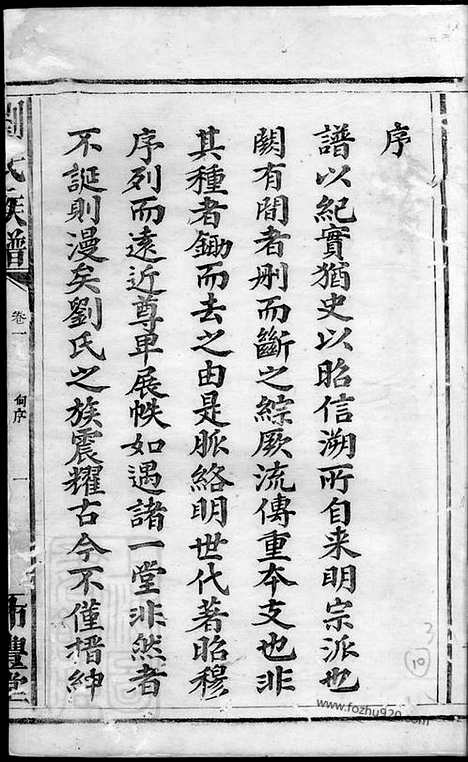 序
譜以紀實猶史以昭信溯所自来明宗派也
闕有間者刪而斷之綜厥流傳重本支也非
其種者鋤而去之由是脈絡明世代著昭穆
序列而遠近尊卑展帙如遇諸一堂非然者
不誕則漫矣劉氏之族震耀古今不僅搢紳
劉氏族譜
卷一
序
一
豐堂
10
www.fozhu920.com